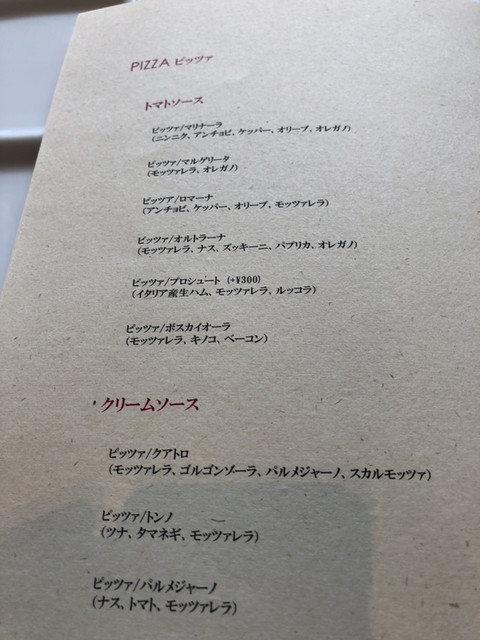 PIZZA ピッツァ
トマトソース
ピッツァ/マリナーラ
(ニンニク、アンチョビ、ケッパー、オリーブ、オレガノ)
ピッツァ/マルゲリータ
(モッツァレラ、オレガノ)
ピッツア/ロマーナ
(アンチョビ、ケッパー、オリーブ、モッツァレラ)
ピッツァ/オルトラーナ
(モッツァレラ、ナス、ズッキーニ、パプリカ、オレガノ)
ピッツァ/プロシュート (+¥300)
(イタリア産生ハム、モッツァレラ、ルッコラ)
ピッツァ/ボスカイオーラ
(モッツァレラ、キノコ、ベーコン)
クリームソース
ピッツァ/クアトロ
(モッツァレラ、ゴルゴンゾーラ、パルメジャーノ、スカルモッツァ)
ピッツァ/トンノ
(ツナ、タマネギ、モッツァレラ)
ピッツァ/パルメジャーノ
(ナス、トマト、モッツァレラ)